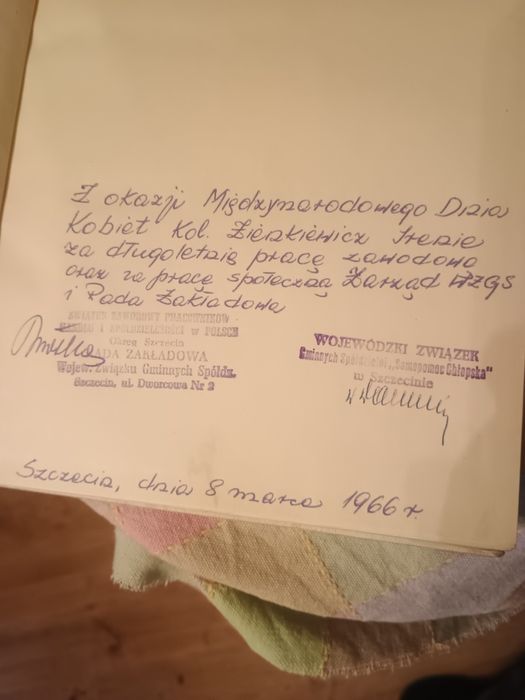 Z okazji Międzynarodowego Dnia
Kobiet Kol. Zienkiewicz Irenie
za długoletnią pracę zawodową
oraz za pracę społeczną Zarząd WZGS
i Rada Zakładowa
ZWIĄZEK ZAWODOWY PRACOWNIKÓW
HANDLU I SPÓŁDZIELCZOŚCI w POLSCE
Okręg Szczecin
RADA ZAKŁADOWA
Wojew. Związku Gminnych Spółdz.
Szczecin, ul. Dworcowa Nr 2
WOJEWÓDZKI ZWIĄZEK
Gminnych Spółdzielni „Samopomoc Chłopska"
w Szczecinie
Szczecin, dnia 8 marca 1966 r.